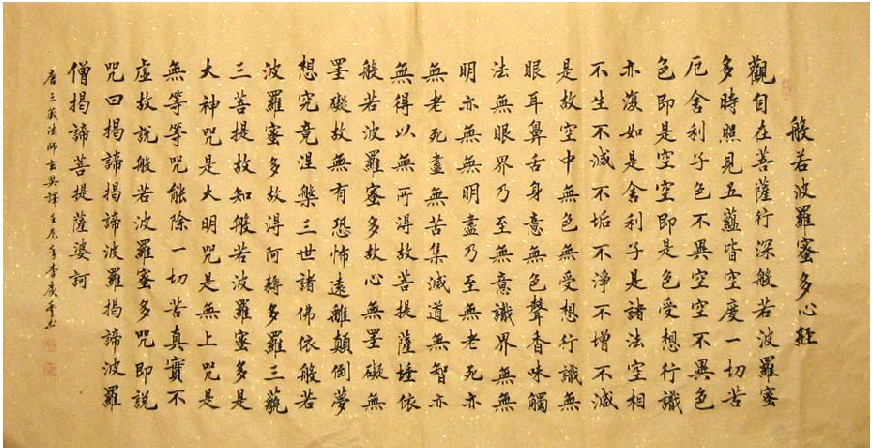 般若波羅蜜多心經
觀自在菩薩行深般若波羅蜜
多時照見五蘊皆空度一切苦
厄舍利子色不異空空不異色
色即是空空即是色受想行識
亦復如是舍利子是諸法空相
不生不滅不垢不淨不增不減
是故空中無色無受想行識無
眼耳鼻舌身意無色聲香味觸
法無眼界乃至無意識界無無
明亦無無明盡乃至無老死亦
無老死盡無苦集滅道無智亦
無得以無所得故菩提薩埵依
般若波羅蜜多故心無墨礙無
墨礙故無有恐怖遠離顛倒夢
想究竟涅槃三世諸佛依般若
波羅蜜多故得阿耨多羅三藐
三菩提故知般若波羅蜜多是
大神咒是大明咒是無上咒是
無等等咒能除一切苦真實不
虛故說般若波羅蜜多咒即說
咒曰揭諦揭諦波羅揭諦波羅
僧揭諦菩提薩婆訶
唐三藏法師玄奘譯壬辰年李